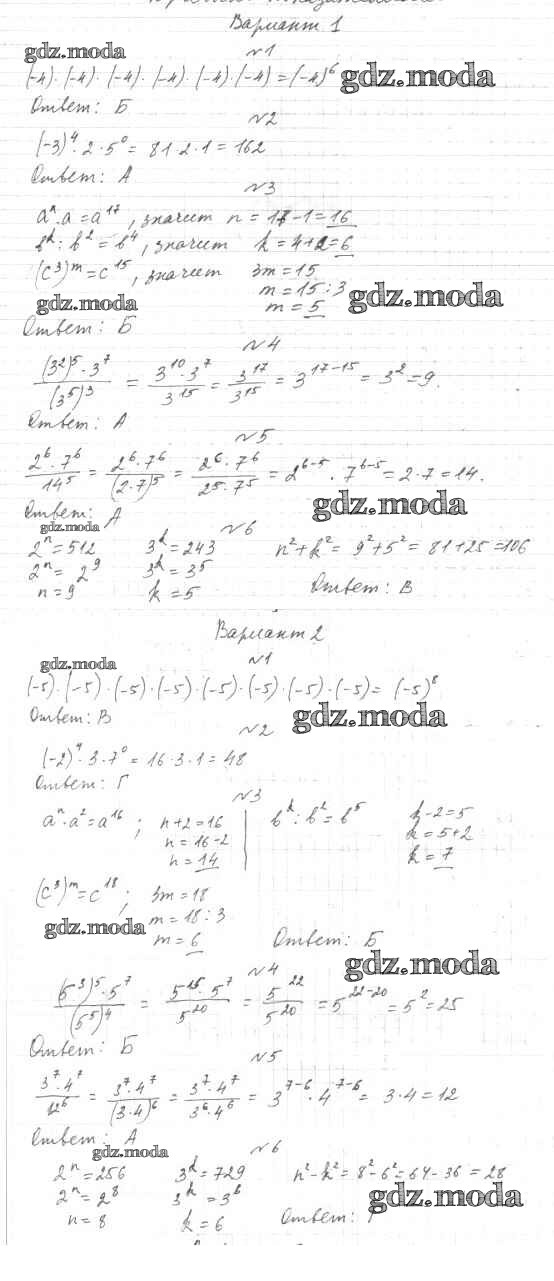 Вариант 1
gdz.moda
№1
(-4)·(-4)·(-4)·(-4)·(-4)·(-4)=(-4)⁶ gdz.moda
Ответ: Б
№2
(-3)⁴·2·5⁰ = 81·2·1 = 162
Ответ: А
№3
aⁿ·a = a¹⁷, значит n = 17-1=16
bᵏ:b² = b⁴, значит k = 4+2=6
(c³)ᵐ = c¹⁵, значит 3m = 15
m = 15:3
gdz.moda m = 5 gdz.moda
Ответ: Б
№4
(3²)⁵·3⁷/(3⁵)³ = 3¹⁰·3⁷/3¹⁵ = 3¹⁷/3¹⁵ = 3¹⁷⁻¹⁵ = 3² = 9.
Ответ: А
№5
2⁶·7⁶/14⁵ = 2⁶·7⁶/(2·7)⁵ = 2⁶·7⁶/2⁵·7⁵ = 2⁶⁻⁵·7⁶⁻⁵ = 2·7 = 14.
Ответ: А gdz.moda
gdz.moda №6
2ⁿ = 512 3ᵏ = 243 n²+k² = 9²+5² = 81+25 = 106
2ⁿ = 2⁹ 3ᵏ = 3⁵
n = 9 k = 5 Ответ: В
Вариант 2
gdz.moda №1
(-5)·(-5)·(-5)·(-5)·(-5)·(-5)·(-5)·(-5) = (-5)⁸
Ответ: В gdz.moda
№2
(-2)⁴·3·7⁰ = 16·3·1 = 48
Ответ: Г
№3
aⁿ·a² = a¹⁶; n+2=16 bᵏ:b² = b⁵ k-2=5
n = 16-2 k = 5+2
n = 14 k = 7
(c³)ᵐ = c¹⁸; 3m = 18
gdz.moda m = 18:3
m = 6 Ответ: Б
gdz.moda
№4
(5³)⁵·5⁷/(5⁵)⁴ = 5¹⁵·5⁷/5²⁰ = 5²²/5²⁰ = 5²²⁻²⁰ = 5² = 25
Ответ: Б
№5
3⁷·4⁷/12⁶ = 3⁷·4⁷/(3·4)⁶ = 3⁷·4⁷/3⁶·4⁶ = 3⁷⁻⁶·4⁷⁻⁶ = 3·4 = 12
Ответ: А
gdz.moda №6
2ⁿ = 256 3ᵏ = 729 n²-k² = 8²-6² = 64-36 = 28
2ⁿ = 2⁸ 3ᵏ = 3⁶ gdz.moda
n = 8 k = 6 Ответ: Г